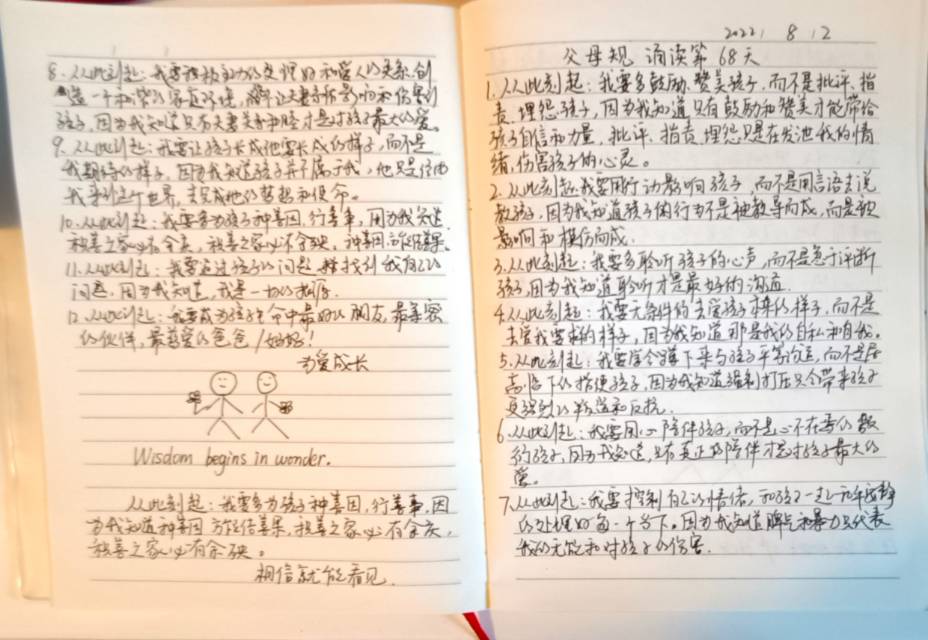 8、从此刻起:我要积极主动的处理好和爱人的关系,创
造一个和谐的家庭环境,不让夫妻矛盾影响和伤害到
孩子,因为我知道只有夫妻关系和睦才是对孩子最大的爱。
9、从此刻起:我要让孩子长成他要长成的样子,而不是
我期待的样子,因为我知道孩子并不属于我,他只是经由
我来到这个世界,去完成他的梦想和使命。
10、从此刻起:我要多为孩子种善因,行善事,因为我知道
积善之家必有余庆,积善之家必不余殃,种善因方能结善果。
11、从此刻起:我要通过孩子的问题,找到我自己的
问题,因为我知道,我是一切的根源。
12、从此刻起:我要成为孩子生命中最好的朋友,最亲密
的伙伴,最慈爱的爸爸/妈妈!
为爱成长
Wisdom begins in wonder.
从此刻起:我要多为孩子种善因,行善事,因
为我知道种善因方能结善果,积善之家必有余庆,
积善之家必有余殃。
相信就能看见.
2022,8,12
父母规 诵读第68天
1、从此刻起:我要多鼓励、赞美孩子,而不是批评、指
责、埋怨孩子,因为我知道只有鼓励和赞美才能带给
孩子自信和力量,批评、指责、埋怨只是在发泄我的情
绪,伤害孩子的心灵。
2、从此刻起:我要用行动影响孩子,而不是用言语去说
教孩子,因为我知道孩子的行为不是被教导而成,而是被
影响和模仿而成。
3、从此刻起:我要多聆听孩子的心声,而不是急于评断
孩子,因为我知道聆听才是最好的沟通.
4、从此刻起:我要无条件的去爱孩子本来的样子,而不是
去爱我要求的样子,因为我知道那是我的自私和自我。
5、从此刻起:我要学会蹲下来与孩子平等沟通,而不是居
高临下的指使孩子,因为我知道强制打压只会带来孩子
更强烈的叛逆和反抗.
6、从此刻起:我要用心陪伴孩子,而不是心不在焉的敷
衍孩子,因为我知道,只有真正的陪伴才是对孩子最大的
爱。
7、从此刻起:我要控制自己的情绪,和孩子一起平和安静
的处理好每一个当下。因为我知道脾气和暴力只代表
我的无能和对孩子的伤害.